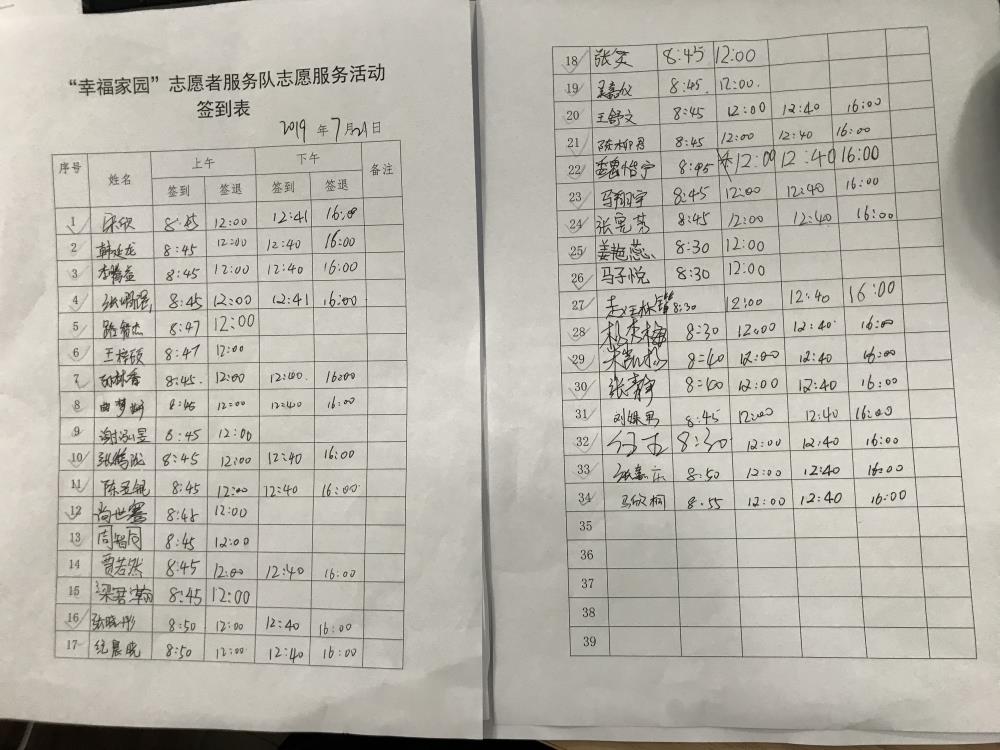 “幸福家园”志愿者服务队志愿服务活动
签到表
2019 年 7月21日
序号 姓名 上午 下午 备注
签到 签退 签到 签退
1 宋欣 8:45 12:00 12:41 16:00
2 韩延龙 8:45 12:00 12:40 16:00
3 8:45 12:00 12:40 16:00
4 8:45 12:00 12:41 16:00
5 8:47 12:00
6 王梓硕 8:47 12:00
7 8:45. 12:00 12:40. 16:00
8 曲梦婷 8:45 12:00 12:40 16:00
9 谢泓昱 8:45 12:00
10 8:45 12:00 12:40 16:00
11 8:45 12:00 12:40 16:00
12 尚世骞 8:45 12:00
13 周智同 8:45 12:00
14 贾若然 8:45 12:00 12:40 16:00
15 梁君瀚 8:45 12:00
16 张晓彤 8:50 12:00 12:40 16:00
17 纪晨晓 8:50 12:00 12:40 16:00
18 8:45 12:00
19 8:45. 12:00.
20 王舒文 8:45 12:00 12:40 16:00
21 陈柳君 8:45 12:00 12:40 16:00
22 魏怡宁 8:45 12:00 12:40 16:00
23 马翔宇 8:45 12:00 12:40 16:00
24 8:45 12:00 12:40 16:00
25 姜艳蕊 8:30 12:00
26 马子悦 8:30 12:00
27 8:30 12:00 12:40 16:00
28 杨李梅 8:30 12:00 12:40 16:00
29 8:40 12:00 12:40 16:00
30 张静 8:40 12:00 12:40 16:00
31 8:45 12:00 12:40 16:00
32 8:30 12:00 12:40 16:00
33 张嘉乐 8:50 12:00 12:40 16:00
34 马欣桐 8:55 12:00 12:40 16:00
35
36
37
38
39